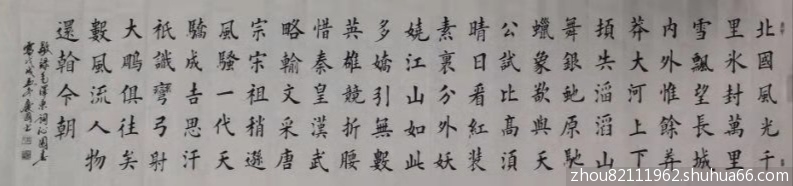 北國風光千
里氷封萬里
雪飄望長城
内外惟餘莽
莽大河上下
頓失滔滔山
舞銀蛇原馳
蠟象欲與天
公試比高須
晴日看紅裝
素裹分外妖
嬈江山如此
多嬌引無數
英雄競折腰
惜秦皇漢武
略輸文采唐
宗宋祖稍遜
風騷一代天
驕成吉思汗
祇識彎弓射
大鵬俱往矣
數風流人物
還翰今朝
敬錄毛澤東詞沁園春
雪戊戌
zhou82111962.shuhua66.com